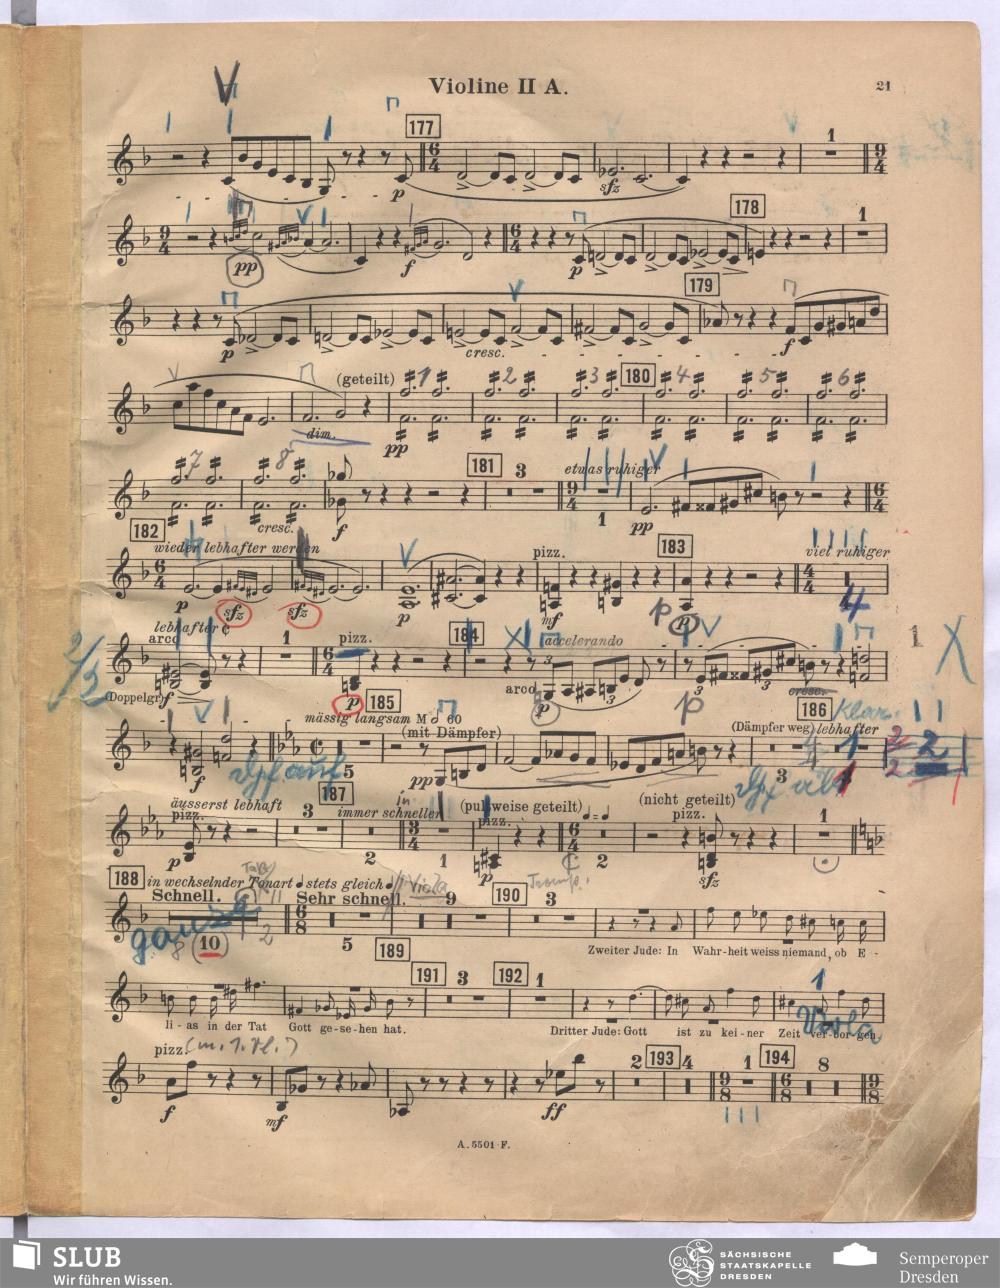 Violine II A.
21
177
1
p
sfz
178
1
pp
f
p
179
p
cresc.
f
(geteilt)
1 2 3 180 4 5 6
dim.
pp
7 8
181
3
etwas ruhiger
cresc.
f
1
pp
182
wieder lebhafter werden
pizz.
183
viel ruhiger
p
sfz
sfz
p
mf
p
p
4
lebhafter
arco
1
pizz.
184
accelerando
2/3
(Doppelgr.)
f
p
arco
p
p
cresc.
185
mässig langsam
60
(mit Dämpfer)
(Dämpfer weg)
186
lebhafter
Klar.
f
Dpf auf
5
pp
3
1
2
2
2
äusserst lebhaft
pizz.
3
187
immer schneller
in
(pultweise geteilt)
pizz.
(nicht geteilt)
pizz.
1
p
2
1
p
2
sfz
188
in wechselnder Tonart stets gleich
Viola
Schnell.
Sehr schnell.
9
190
3
Tromp.
ganze
8
10
2
5
189
Zweiter Jude: In Wahr-heit weiss niemand, ob E -
191
3
192
1
1
li - as in der Tat Gott ge-se-hen hat.
Dritter Jude: Gott ist zu kei-ner Zeit ver-bor-gen
Viola
pizz.
(m. 1. Vl.)
2
193
4
1
194
8
f
mf
ff
A. 5501 F.
SLUB
Wir führen Wissen.
SÄCHSISCHE
STAATSKAPELLE
DRESDEN
Semperoper
Dresden